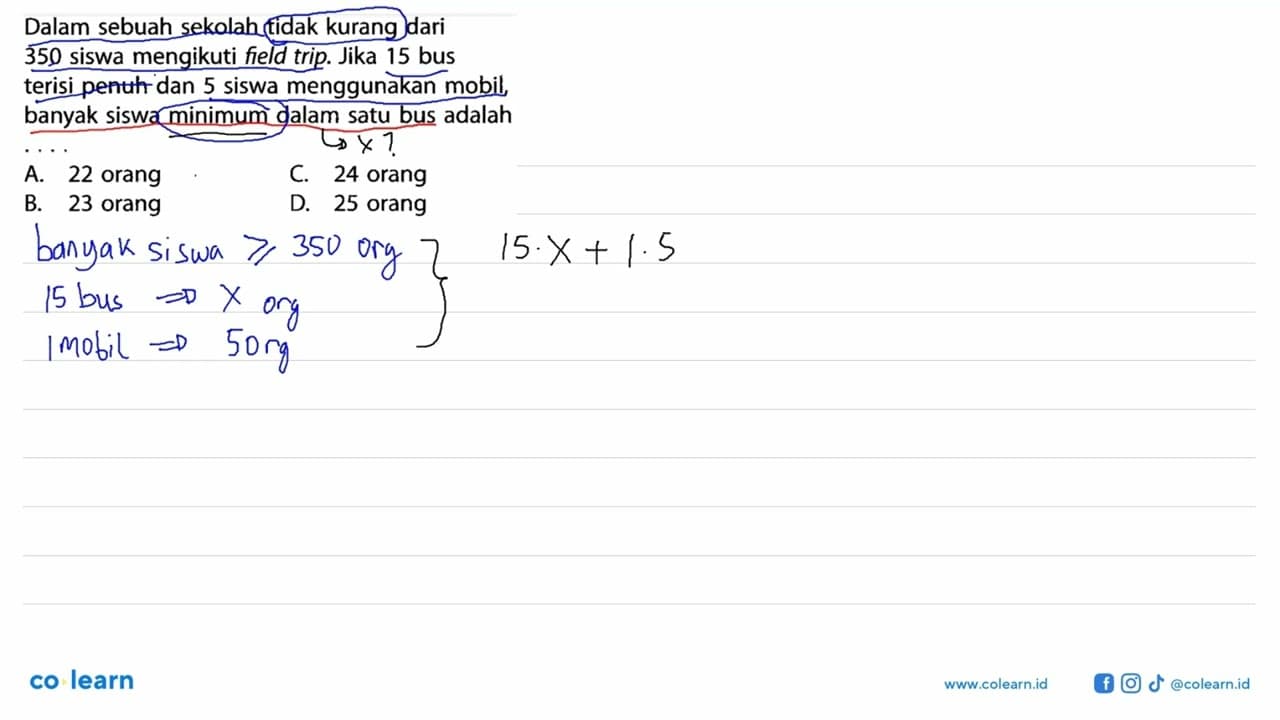 Dalam sebuah sekolah tidak kurang dari
350 siswa mengikuti field trip. Jika 15 bus
terisi penuh dan 5 siswa menggunakan mobil,
banyak siswa minimum dalam satu bus adalah
. . . .
↳ x ?
A. 22 orang C. 24 orang
B. 23 orang D. 25 orang
banyak siswa ⩾ 350 org
15 bus ⇒ x org
1 mobil ⇒ 5 org
15 · x + 1 . 5
co learn
www.colearn.id
@colearn.id